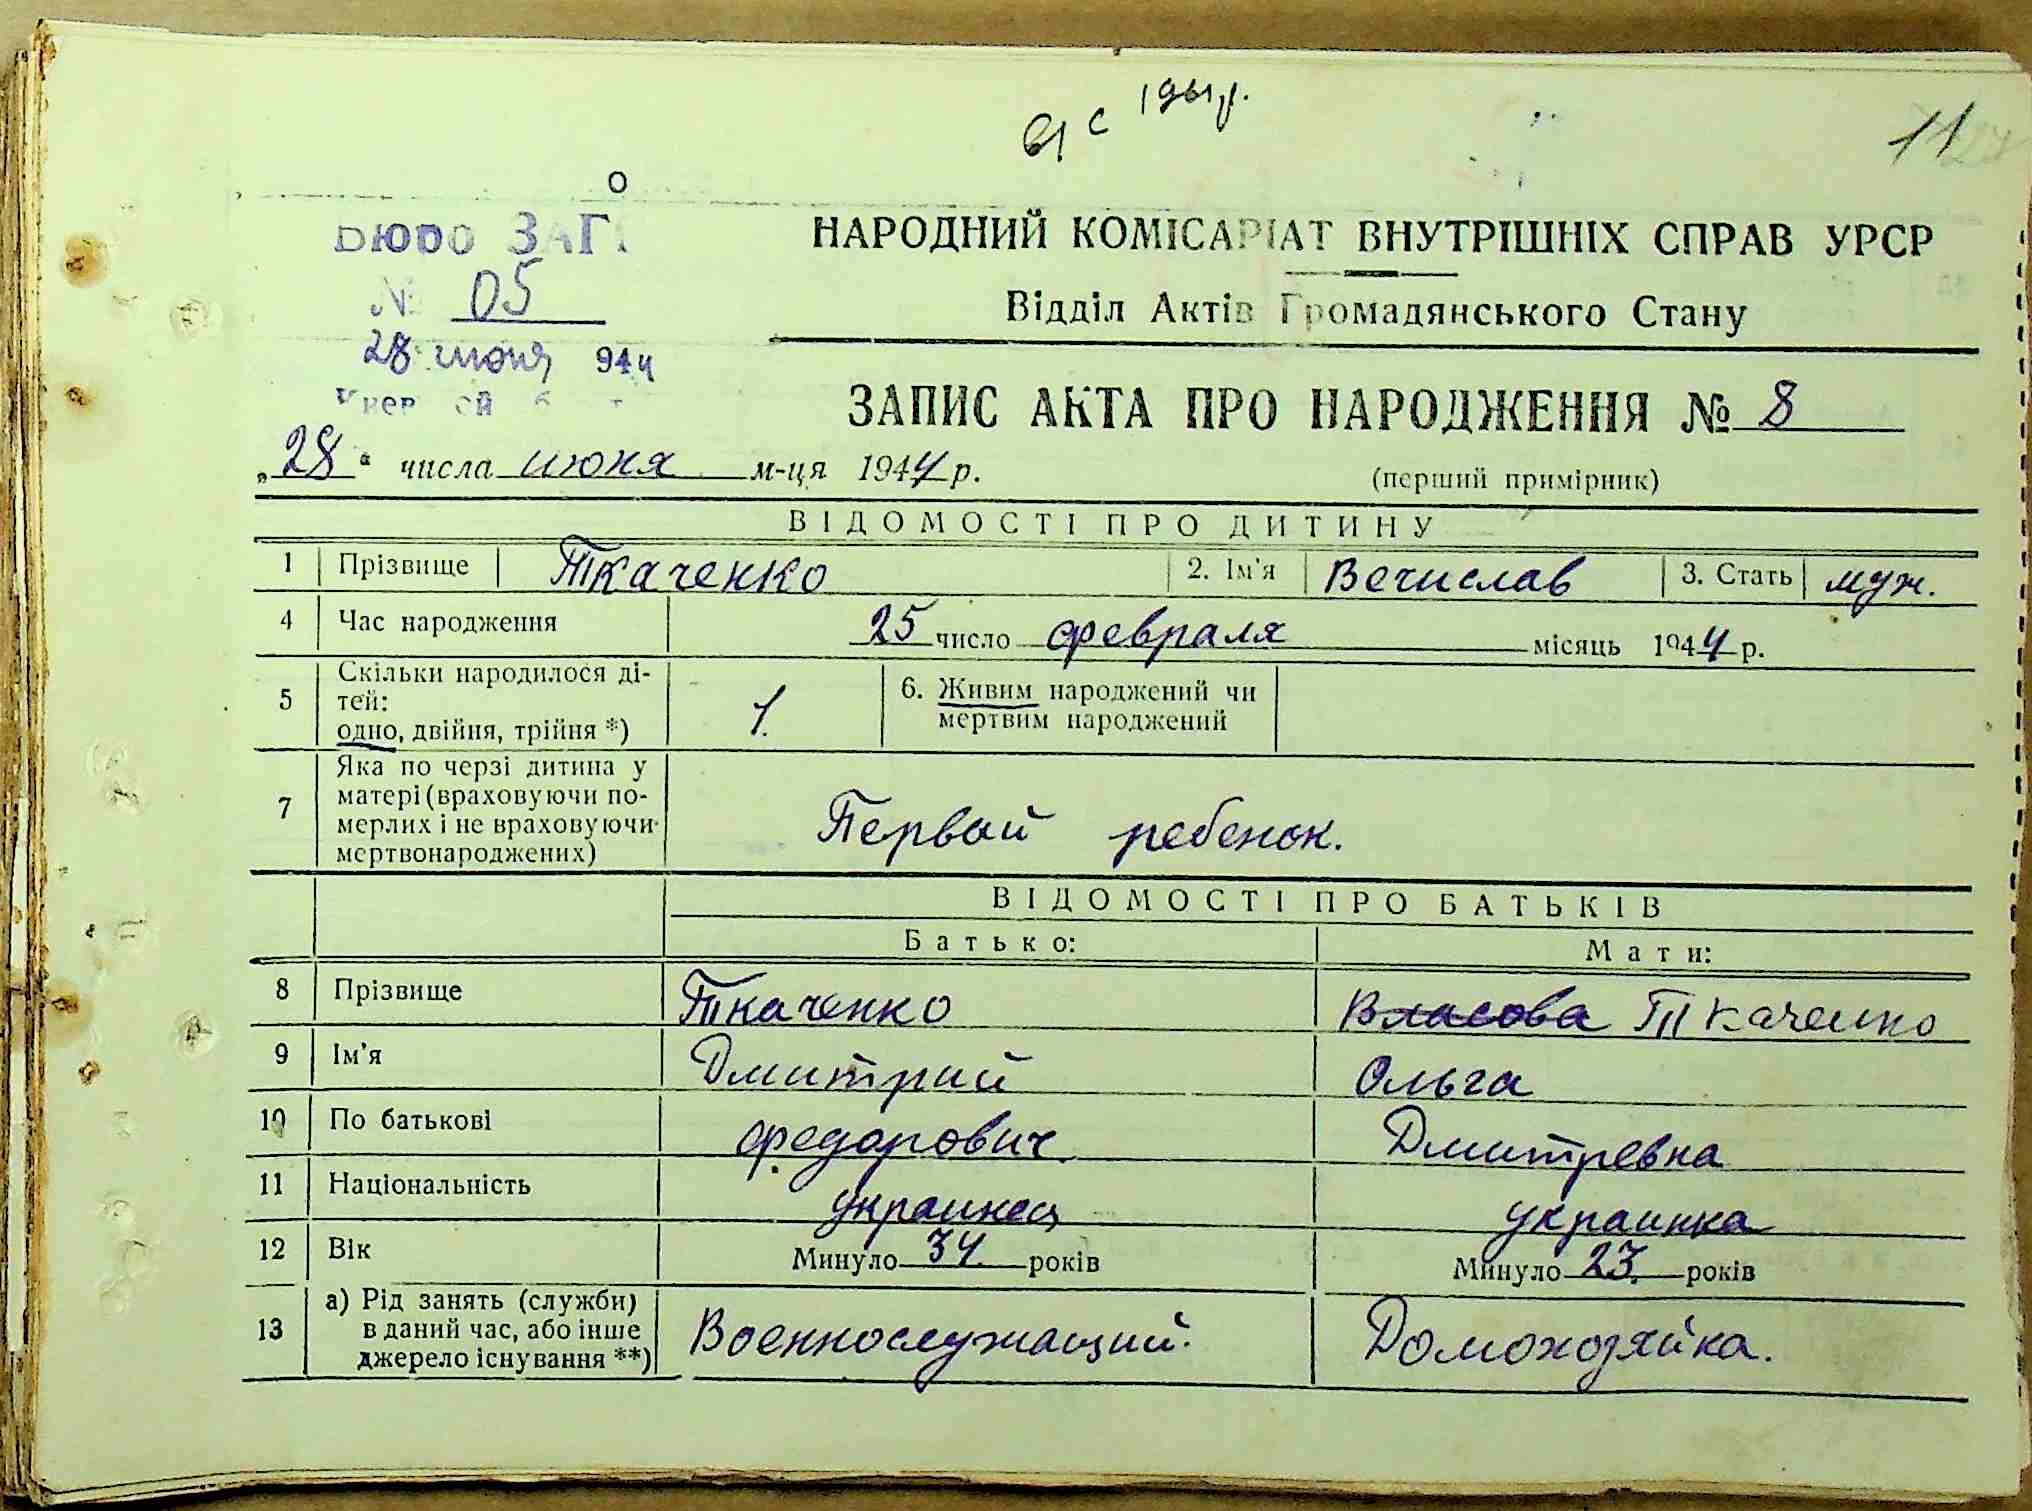 1961р.
11
Бюро ЗАГ
№ 05
28 июня 944
НАРОДНИЙ КОМІСАРІАТ ВНУТРІШНІХ СПРАВ УРСР
Відділ Актів Громадянського Стану
ЗАПИС АКТА ПРО НАРОДЖЕННЯ № 8
„28“ числа июня м-ця 1944 р.
(перший примірник)
ВІДОМОСТІ ПРО ДИТИНУ
1 Прізвище Ткаченко 2. Ім'я Вечислав 3. Стать муж.
4 Час народження 25 число февраля місяць 1944 р.
5 Скільки народилося ді-
тей:
одно, двійня, трійня *)
1.
6. Живим народжений чи
мертвим народжений
7 Яка по черзі дитина у
матері (враховуючи по-
мерлих і не враховуючи
мертвонароджених)
Первый ребенок.
ВІДОМОСТІ ПРО БАТЬКІВ
Батько: Мати:
8 Прізвище Ткаченко Власова Ткаченко
9 Ім'я Дмитрий Ольга
10 По батькові Федорович Дмитревна
11 Національність украинец украинка
12 Вік Минуло 34 років Минуло 23 років
13 а) Рід занять (служби)
в даний час, або інше
джерело існування **)
Военнослужащий. Домохозяйка.